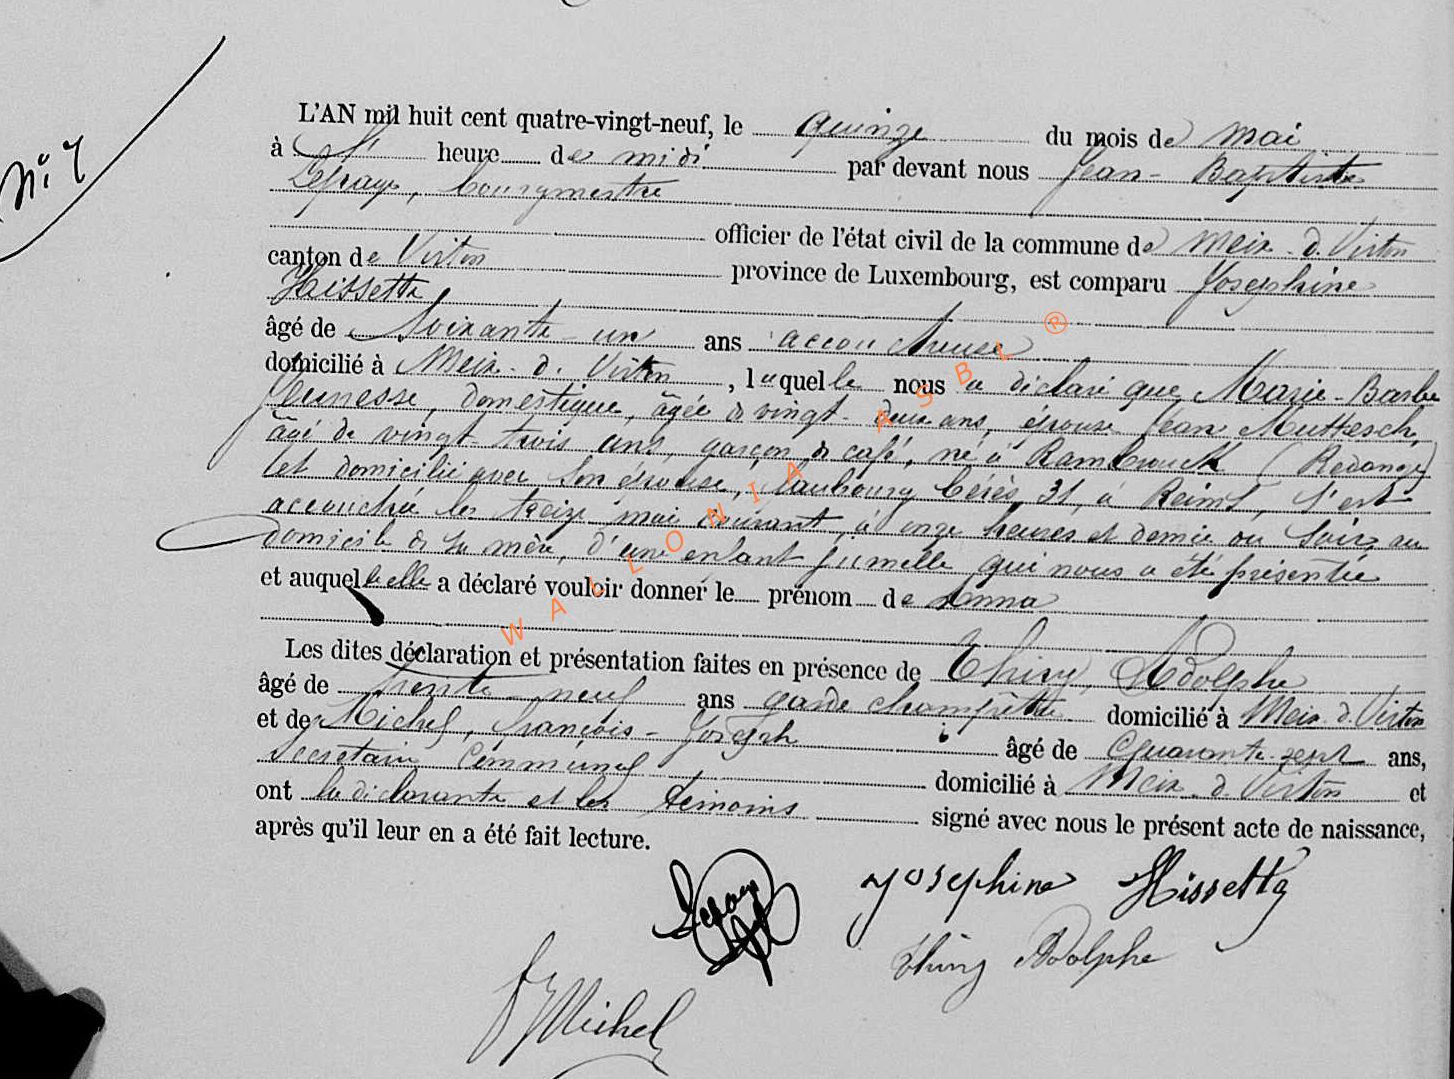 N° 7
L'AN mil huit cent quatre-vingt-neuf, le quinze du mois de mai
à heure de midi par devant nous Jean-Baptiste
Lefray, bourgmestre
officier de l'état civil de la commune de Meix-d.Virton
canton de Virton province de Luxembourg, est comparu Joséphine
Hissette
âgé de Soixante-un ans accoucheuse
domicilié à Meix-d. Virton, laquelle nous a déclaré que Marie-Barbe
Jeunesse, domestique, âgée de vingt-deux ans, épouse Jean Muttesch,
âgé de vingt trois ans, garçon de café, né à Rambrouch (Redange)
et domicilié avec son épouse, faubourg Cérès, 31, à Reims, s'est
accouchée le treize mai courant, à onze heures et demie du soir, au
domicile de sa mère, d'une enfant jumelle qui nous a été présentée
et auquelle elle a déclaré vouloir donner le prénom de Anna
Les dites déclaration et présentation faites en présence de Thiry, Adolphe
âgé de trente-neuf ans garde champêtre domicilié à Meix-d.Virton
et de Michel, François-Joseph âgé de Quarante-sept ans,
Secrétaire Communal domicilié à Meix-d.Virton et
ont la déclarante et les témoins signé avec nous le présent acte de naissance,
après qu'il leur en a été fait lecture.
Lefray Joséphine Hissette
Thiry Adolphe
FJ Michel
WALLONIA ASBL ®